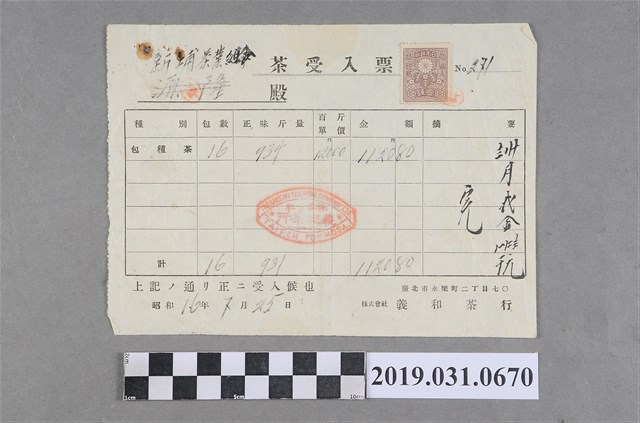 新埔茶業組合
茶受入票 No. 271
殿
種別 包數 正味斤量 百斤單價 金額 摘要
包種茶 16 939 12000 112080
計 16 931 112080
上記ノ通リ正ニ受入候也
昭和16年7月25日
臺北市永樂町二丁目七〇
株式會社 義和茶行
TAIPEH FORMOSA
2cm
1cm 5cm 10cm
2019.031.0670